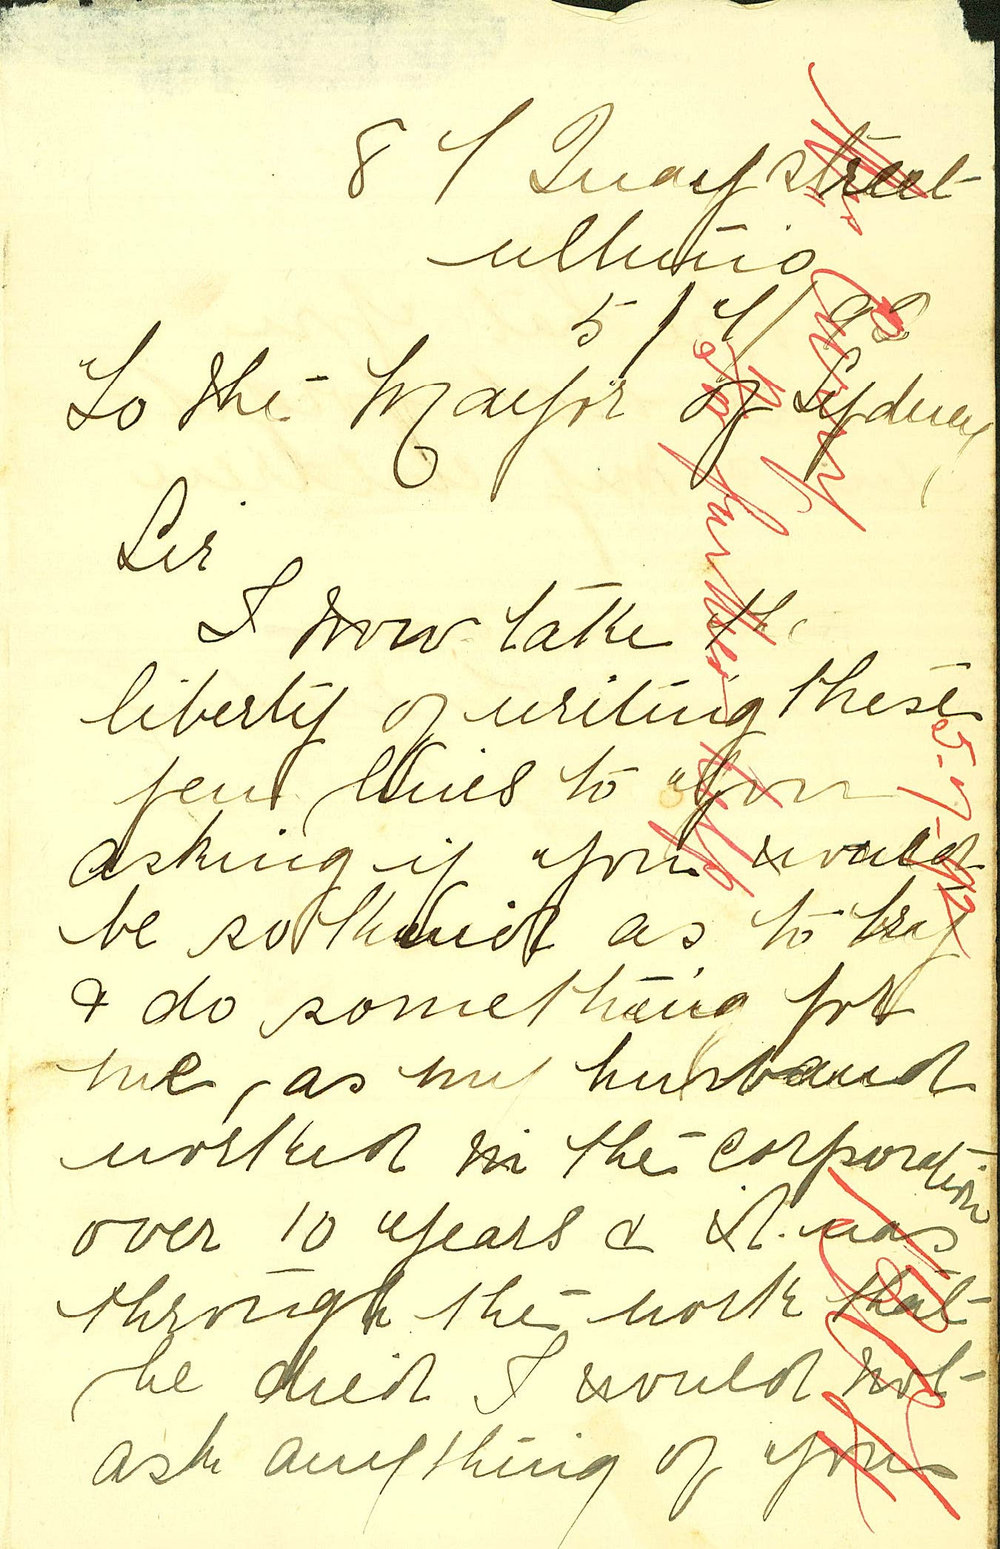 87 Quay street
ultimo
5/7/92
To the Mayor of Sydney
Sir
I now take the
liberty of writing these
few lines to you
asking if you would
be so kind as to try
& do something for
me, as my husband
worked in the corporation
over 10 years & it was
through the work that
he died I would not
ask anything of you
for further help
5-7-92